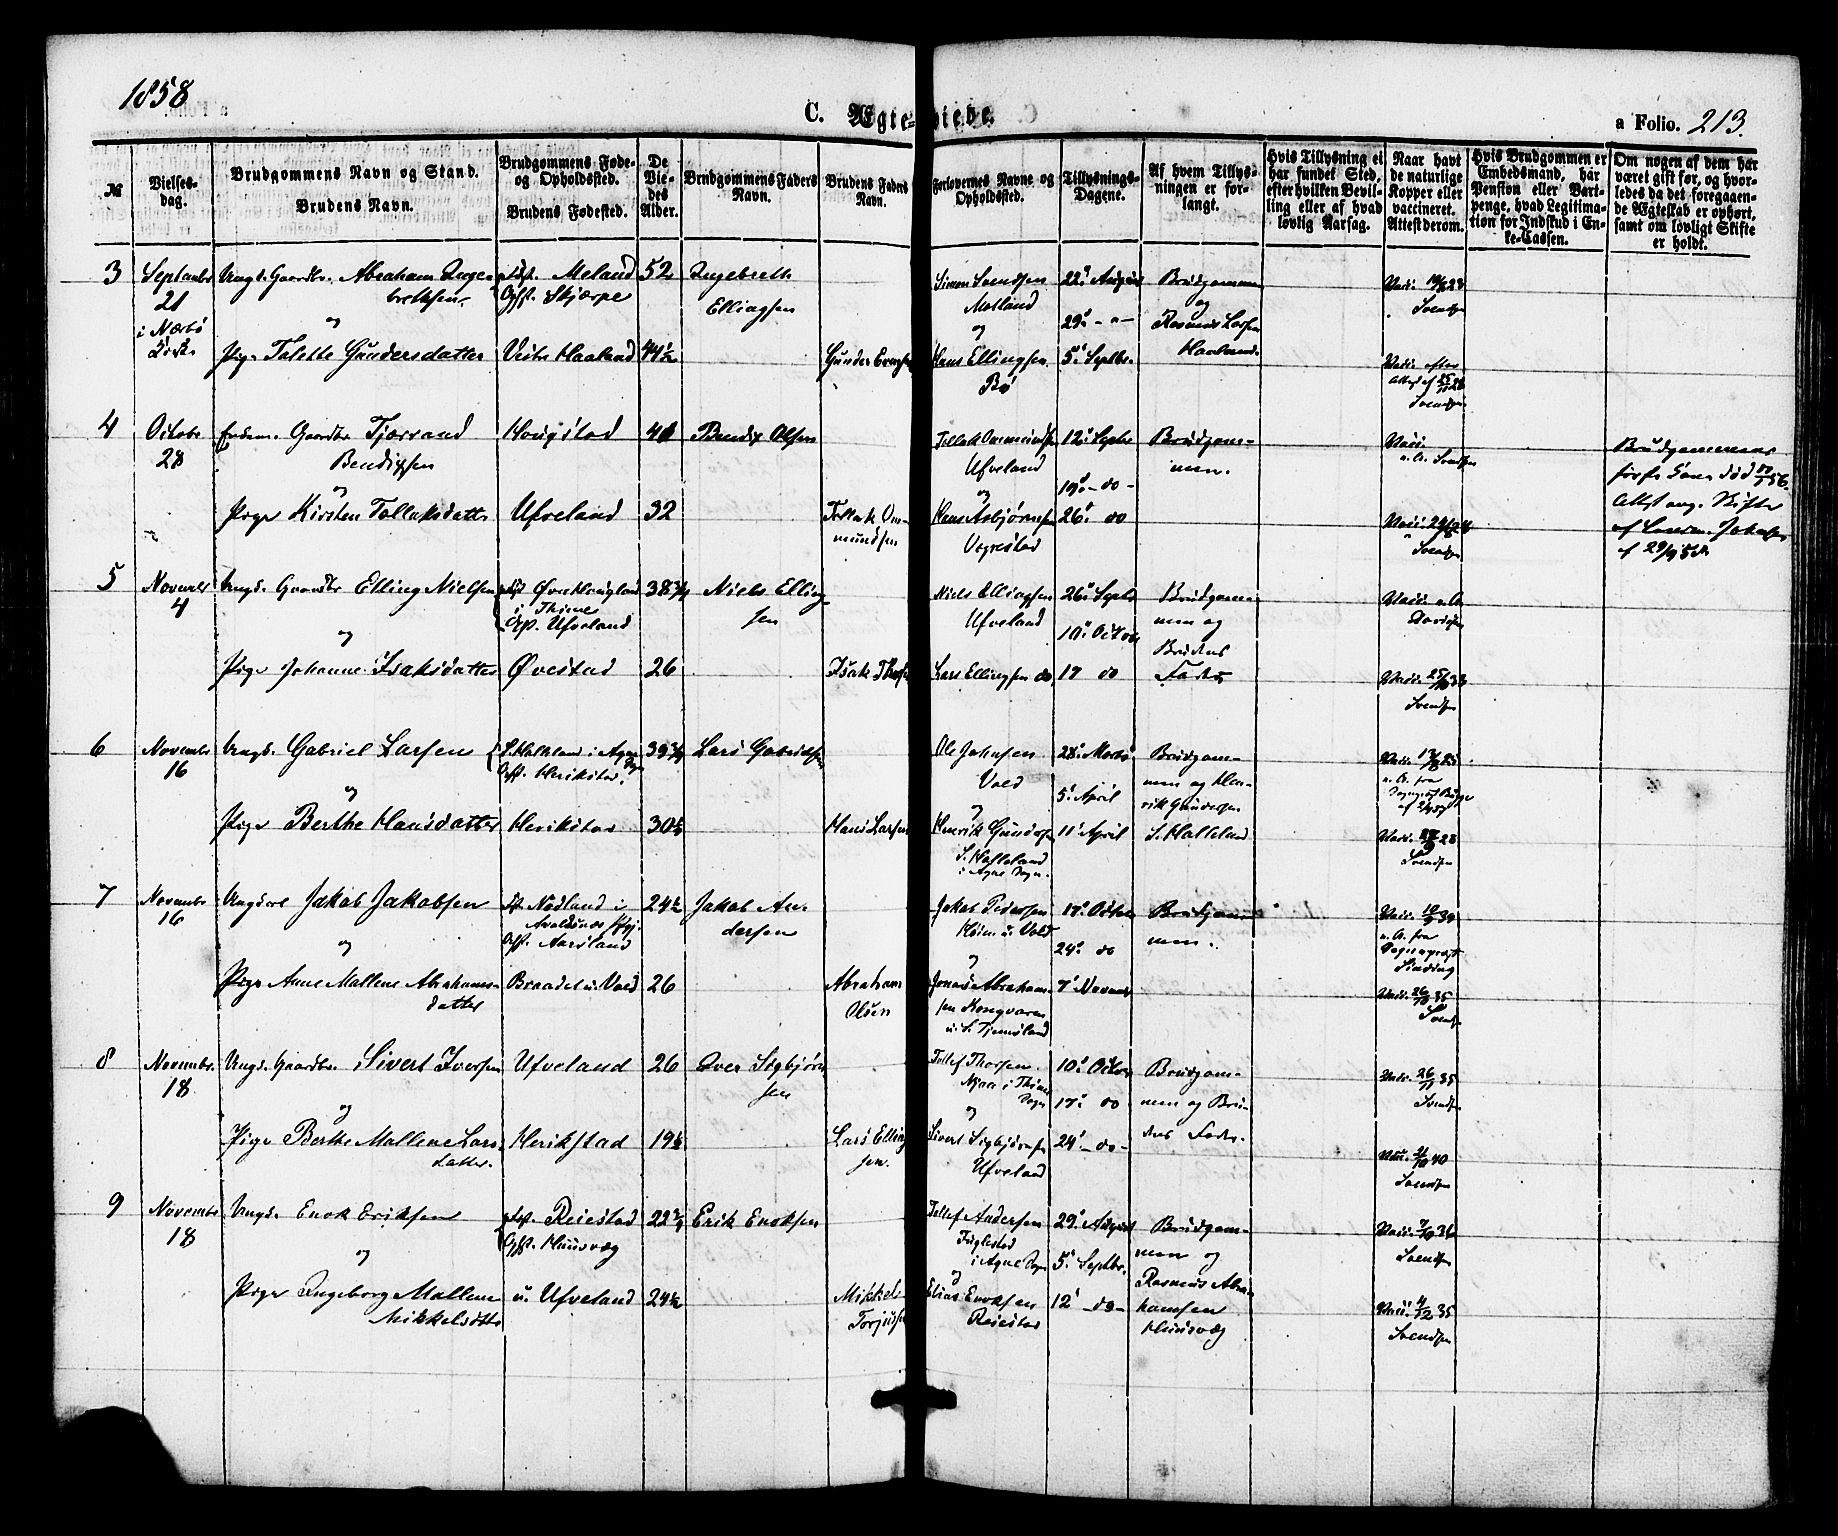 1858
C. Ægteviede.
a Folio. 213.
№
Vielses-
dag.
Brudgommens Navn og Stand.
Brudens Navn.
Brudgommens Føde-
og Opholdssted.
Brudens Fødested.
De
Vie-
des
Alder.
Brudgommens Faders
Navn.
Brudens Faders
Navn.
Forlovernes Navne og
Opholdssted.
Tillysnings-
Dagene.
Af hvem Tillys-
ningen er for-
langt.
Hvis Tillysning ei
har fundet Sted,
efter hvilken Bevil-
ling eller af hvad
lovlig Aarsag.
Naar havt
de naturlige
Kopper eller
vaccineret.
Attest derom.
Hvis Brudgommen er
Embedsmand, har
Pension eller Vart-
penge, hvad Legitima-
tion for Indskud i En-
ke-Cassen.
Om nogen af dem har
været gift før, og hvor-
ledes da det foregaaen-
de Ægteskab er ophørt,
samt om lovligt Skifte
er holdt.
3
Septembr
21
i Nærbø
Kirke
Ungk. Gaardbr. Abraham Inge-
brethsen
og
Pige Talette Gundersdatter
Fdst. Meland
Opst. Skjærpe
Vestre Haaland
52
44½
Ingebreth
Ellingsen
Gunder Evensen
Simon Svendsen
Motland
og
Hans Ellingsen
Bø
22' August
29' - " -
5' Septbr.
Brudgommen
og
Rasmus Larsen
Haaland.
Svendsen
Vacc. efter
Svendsen
4
Octobr
28
Enkem. Gaardbr Tjærrand
Bendixsen
og
Pige Kirsten Tollaksdatter
Hougstad
Ufveland
41
32
Bendix Olsen
Tollak Om-
mundsen
Tollak Ommundsen
Ufveland
og
Hans Asbjørnsen
Vegrestad
12' Septbr
19' - do -
26' do
Brudgom-
men.
Vacc.
n. A. Svendsen
Svendsen
Brudgommens
første Kone død
Attest ang. Skifte
af
af 29/9 58
5
Novembr
4
Ungk. Gaardbr Elling Nielsen
og
Pige Johanne Isaksdatter
Fdst Øvre Hougland
i Thime
Opst. Ufveland
Øvestad
38¾
26
Niels Elling-
sen
Isak Thorsen
Niels Ellingsen
Ufveland
Lars Ellingsen do
26' Septbr
10' Octobr
17 do
Brudgom-
men og
Brudens
Fader
Vacc. n. A.
Svendsen
6
Novembr
16
Ungk. Gabriel Larsen
og
Pige Berthe Hansdatter
Opst. Herikstad
Herikstad
39¾
30½
Lars Gabrielsen
Hans Larsen
Ole Johnsen
Vold
og
Henrik Gundersen
S. Halleland
i Agne Sogn.
28' Marts
5' April
11' April
Brudgom-
men og Hen-
rik Gundersen
S. Halleland
n. A. fra
Svendsen
7
Novembr
16
Ungkarl Jakob Jakobsen
og
Pige Anne Mallene Abrahams-
datter
Fdst Nødland i
Avaldsnes Pgj.
Opst. Aarsland
Braadet u. Vold
24½
26
Jakob An-
dersen
Abraham
Olsen
Jakob Pedersen
u. Vold
og
Jonas Abraham-
sen Kongvaren
u. S. Tjemsland
17' Octbr
24' do
7' Novembr
Brudgom-
men.
n. A. fra
Sogneprest
Sinding
Vacc. 26/10 35
Svendsen
8
Novembr.
18
Ungk. Gaardbr. Sivert Iversen
og
Pige Berthe Mallene Lars-
datter.
Ufveland
Herikstad
26
19½
Iver Sigbjørn-
sen
Lars Elling-
sen.
Tollef Thorsen
Njaa i Thime
Sogn
og
Sivert Sigbjørnsen
Ufveland
10' Octobr
17' do
24' - do -
Brudgom-
men og Bru-
dens Fader.
Vacc. 26/11 35
Svendsen
Svendsen
9
Novembr
18
Ungk. Enok Eriksen
og
Pige Ingeborg Mallene
Mikkelsdatter
Fdst. Reiestad
Opst. Huusvæg
u. Ufveland
22¾
24½
Erik Enoksen
Mikkel
Torjussen
Tollef Andersen
Fuglestad
i Agne Sogn
og
Elias Enoksen
Reiestad
29' August
5' Septbr.
12' - do -
Brudgom-
men og
Rasmus Abra-
hamsen
Huusvæg
Vacc. 7/10 36
Svendsen
Vacc. 4/12 35
Svendsen